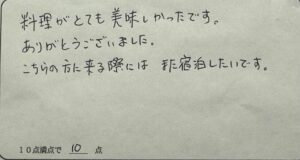 料理がとても美味しかったです。
ありがとうございました。
こちらの方に来る際には また宿泊したいです。
10点満点で 10 点